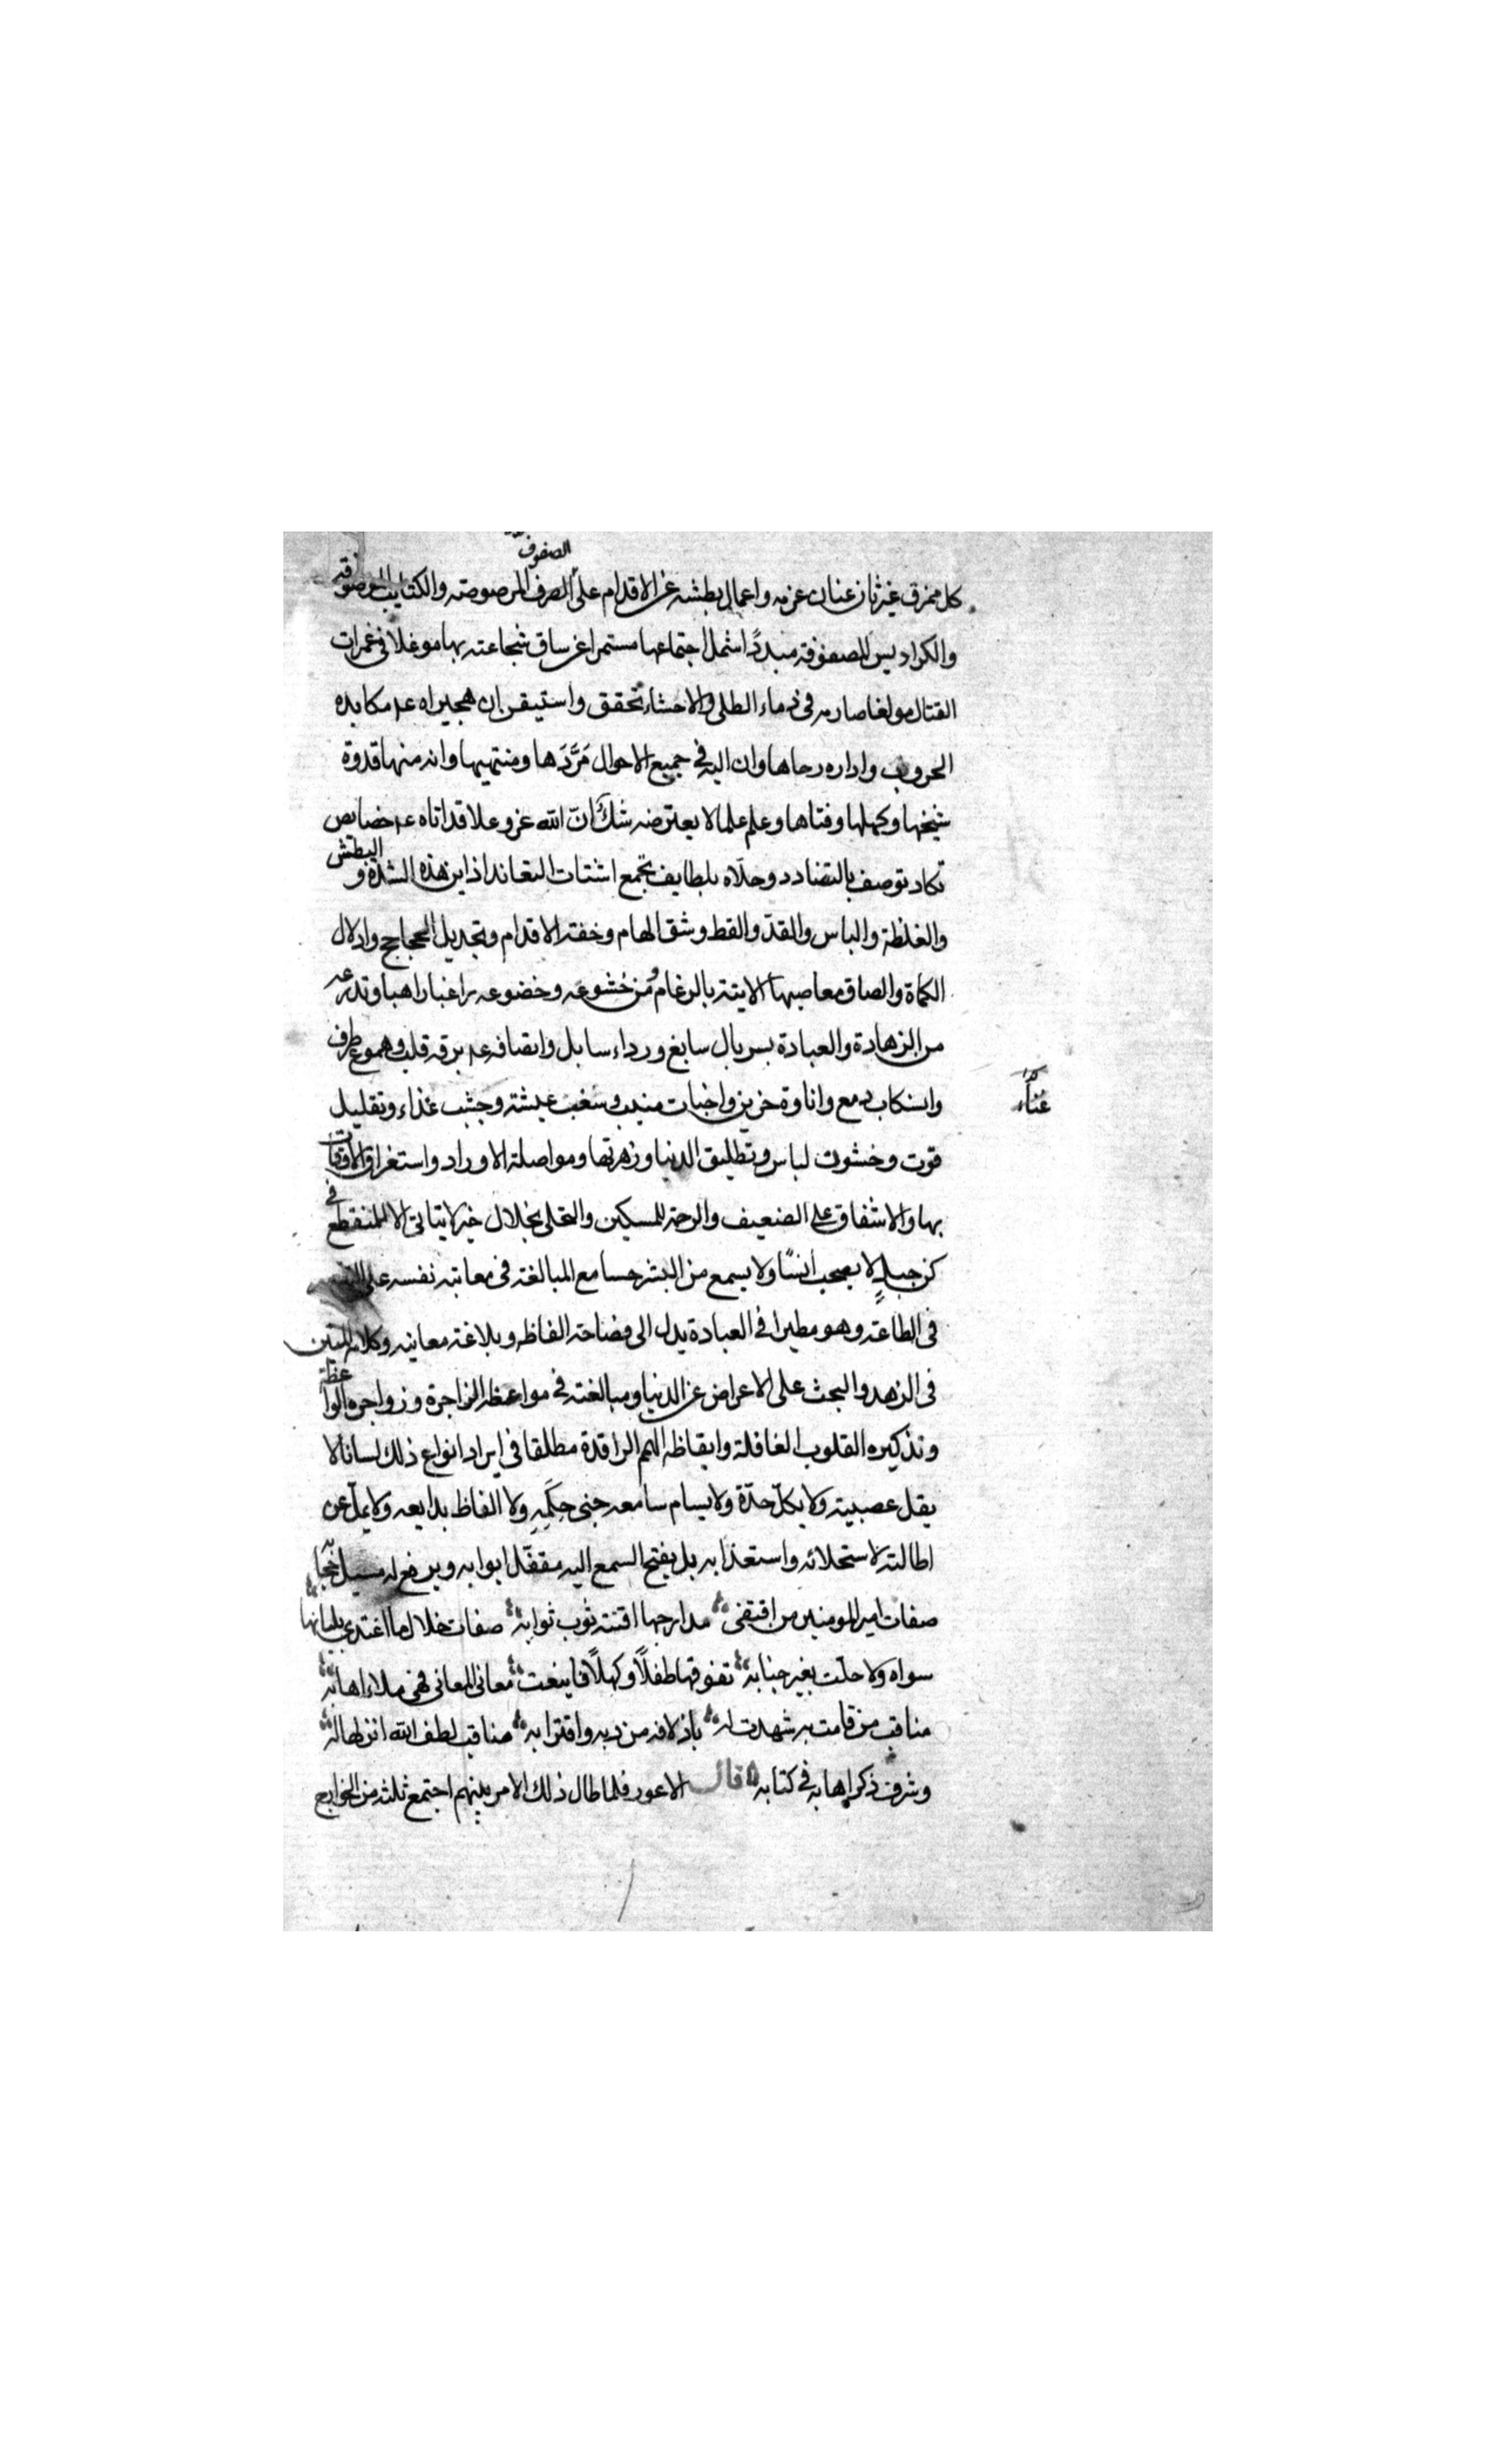 الصفوف
كل ممزق غير ثان عنان عزمه واعمال بطشه عن الاقدام على الصرف المرصوصة والكتايب المرصوفة
والكراديس المصفوفة مبددًا شمل اجتماعها مستمرا عن ساق شجاعته بها موغلا في غمرات
القتال مولغا صارمه في دماء الطلى والاحشاء تحقق واستيقن ان هجيراه عم مكابده
الحروب واداره رحاها وان اليه في جميع الاحوال مَرَّدَها ومنتهيها وانه منها قدوة
شيخها وكهلها وفتاها وعلم علما لا يعترضه شكّ انّ الله عز وعلا قد اتاه عم خصايص
تكاد توصف بالتضادد وحلاه بلطايف تجمع اشتات التعاند اذ اين هذه الشدة و البطش
والغلظة والباس والقدّ والقط وشق الهام وخفة الاقدام وتجديل الحجاجح واذلال
الكماة والصاق معاصيها الابية بالرغام من خشوعه وخضوعه راغبا راهبا وتدرعه
من الزهادة والعبادة بسربال سابغ ورداء سابل واتصافه عم برقة قلب وهموع طرف
وانسكاب دمع واناوة حزين واخبات منيب وشغب عيشة وجشب غذاء وتقليل
قوت وخشونة لباس وتطليق الدنيا وزهرتها ومواصلة الاوراد واستغراق الاوقات
بها والاشفاق على الضعيف والرحمة للمسكين والتحلى بخلال خير لا يتاتى الا لمنقطع في
كن جبلٍ لا يصحب انسًا ولا يسمع من البشر حسا مع المبالغة في معاتبة نفسه على
في الطاعة وهو مطيرا في العبادة يدل الى فصاحة الفاظه وبلاغة معانيه وكلامه المتين
في الزهد والبحث على الاعراض عن الدنيا ومبالغته في مواعظه الزاجرة وزواجره الواعظة
وتذكيره القلوب الغافلة وايقاظه الهمم الراقدة مطلقا في ايراد انواع ذلك لسانا لا
يقل عصبيته ولا يكلّ حدّة ولا يسام سامعه جنى حِكَمِهِ ولا الفاظ بدايعه ولا يملّ عن
اطالته لاستحلائه واستعذابه بل يفتح السمع اليه مقفّل ابوابه ويرفع له مسبل حجابه
صفات امير المومنين من اقتفى مدارجها اقنته ثوب ثوابه صفات خلال ما اغتدى بلبانها
سواه ولا حلّت بغير جنابه تفوقها طفلًا وكهلًا فاينعت معانى المعانى فهى ملاء اهابه
مناقب من قامت به شهدت له باذلافه من ربه واقترابه مناقب لطف الله انزلها له
وشرف ذكراها به في كتابه قال الاعور فلما طال ذلك الامر بينهم اجتمع ثلثة من الخوارج